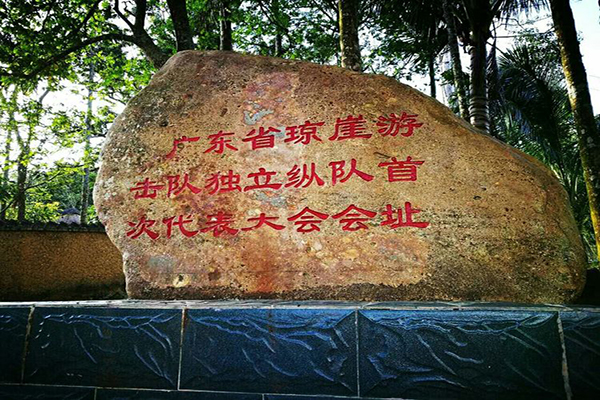 广东省琼崖游
击队独立纵队首
次代表大会会址